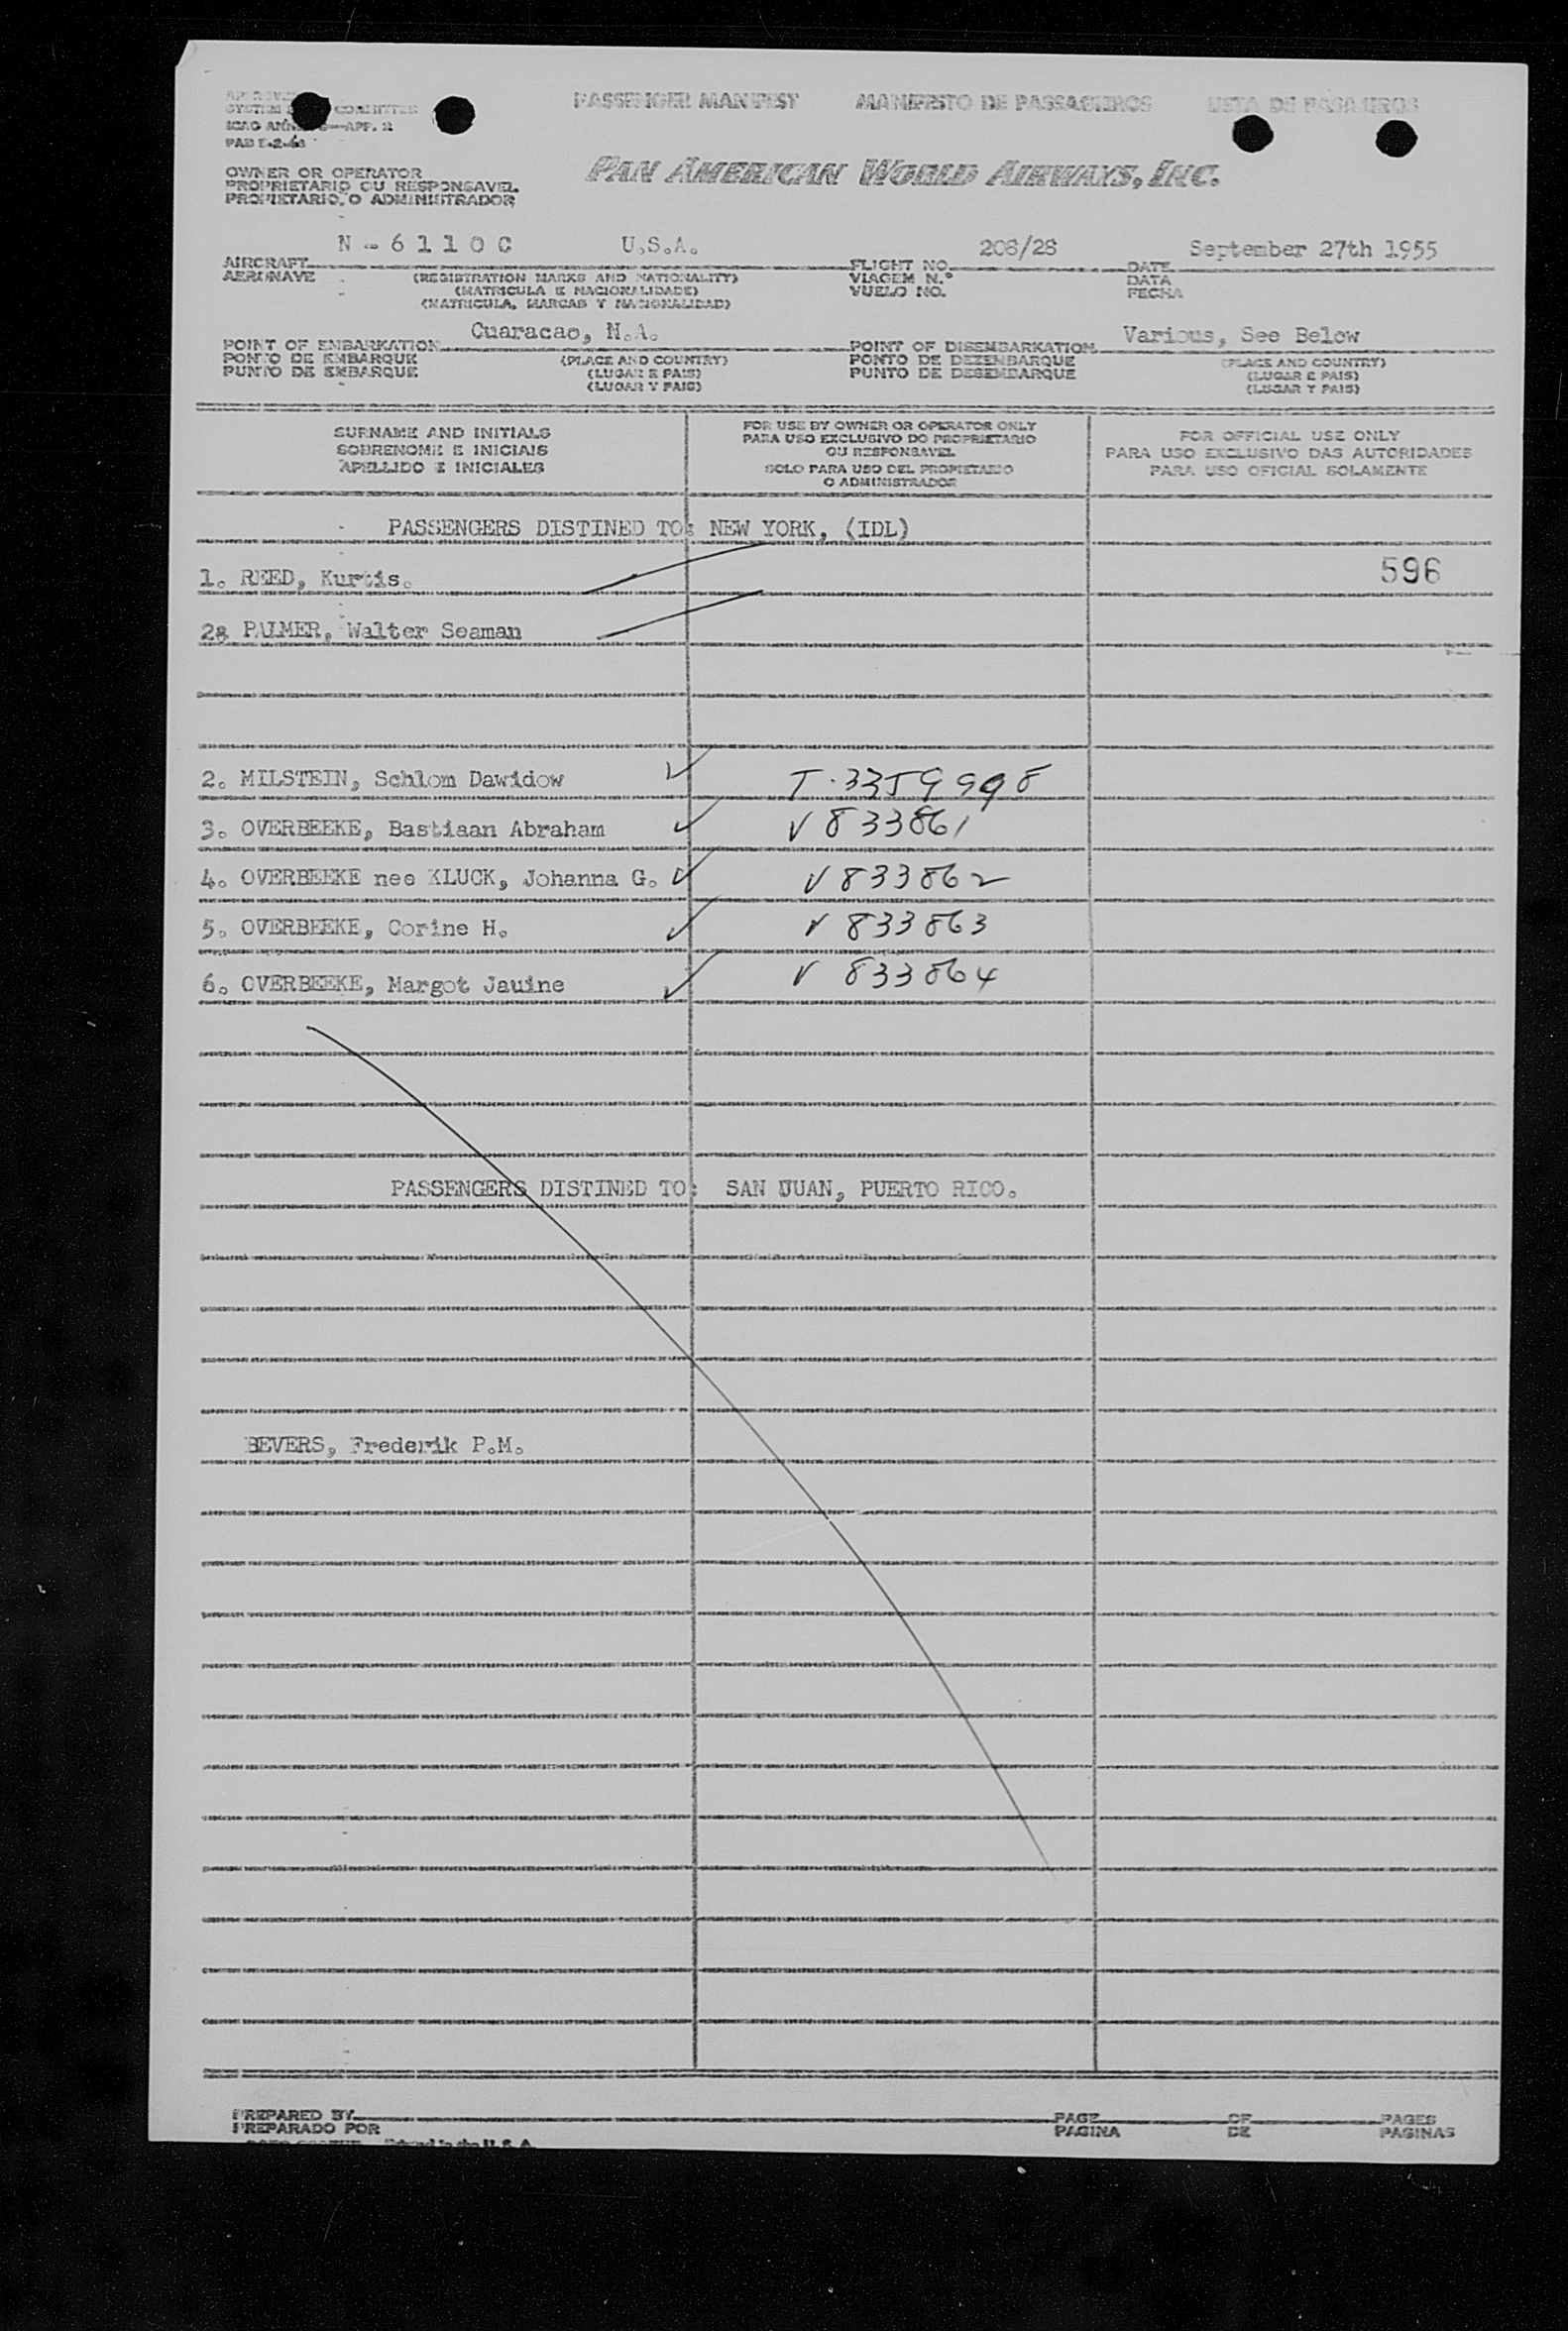 PASSENGER MANIFEST MANIFESTO DE PASSAGEIROS LISTA DE PASAJEROS
ICAO APP. 2
OWNER OR OPERATOR
PROPRIETARIO OU RESPONSAVEL
PROPIETARIO, O ADMINISTRADOR
PAN AMERICAN WORLD AIRWAYS, INC.
N - 6 1 1 0 C U.S.A. 208/28 September 27th 1955
AIRCRAFT FLIGHT NO. DATE
AERONAVE (REGISTRATION MARKS AND NATIONALITY) VIAGEM N.º DATA
(MATRICULA E NACIONALIDADE) VUELO NO. FECHA
(MATRICULA, MARCAS Y NACIONALIDAD)
Cuaracao, N.A. Various, See Below
POINT OF EMBARKATION POINT OF DISEMBARKATION
PONTO DE EMBARQUE (PLACE AND COUNTRY) PONTO DE DEZEMBARQUE (PLACE AND COUNTRY)
PUNTO DE EMBARQUE (LUGAR E PAIS) PUNTO DE DESEMBARQUE (LUGAR E PAIS)
(LUGAR Y PAIS) (LUGAR Y PAIS)
SURNAME AND INITIALS
SOBRENOME E INICIAIS
APELLIDO E INICIALES
FOR USE BY OWNER OR OPERATOR ONLY
PARA USO EXCLUSIVO DO PROPRIETARIO
OU RESPONSAVEL
SOLO PARA USO DEL PROPIETARIO
O ADMINISTRADOR
FOR OFFICIAL USE ONLY
PARA USO EXCLUSIVO DAS AUTORIDADES
PARA USO OFICIAL SOLAMENTE
PASSENGERS DISTINED TO: NEW YORK, (IDL)
1. REED, Kurtis. 596
2. PALMER, Walter Seaman
2. MILSTEIN, Schlom Dawidow T-3359998
3. OVERBEEKE, Bastiaan Abraham V 833861
4. OVERBEEKE nee KLUCK, Johanna G. V 833862
5. OVERBEEKE, Corine H. V 833863
6. OVERBEEKE, Margot Jauine V 833864
PASSENGERS DISTINED TO: SAN JUAN, PUERTO RICO.
BEVERS, Frederik P.M.
PREPARED BY PAGE OF PAGES
PREPARADO POR PAGINA DE PAGINAS